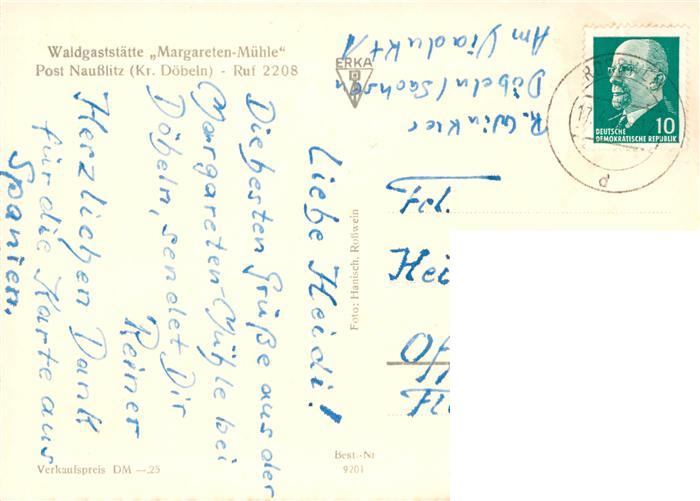 Waldgaststätte „Margareten-Mühle"
Post Naußlitz (Kr. Döbeln) - Ruf 2208
Liebe Heidi!
Die besten Grüße aus der
Margareten-Mühle bei
Döbeln, sendet Dir
Reiner
Herzlichen Dank
für die Karte aus
Spanien.
Verkaufspreis DM —.25
ERKA
Foto: Hanisch, Roßwein
Best.-Nr
9201
R. Winkler
Döbeln/Sachsen
Am Viadukt 1
10
DEUTSCHE
DEMOKRATISCHE REPUBLIK
17.
d
Frl.
Hei
Off